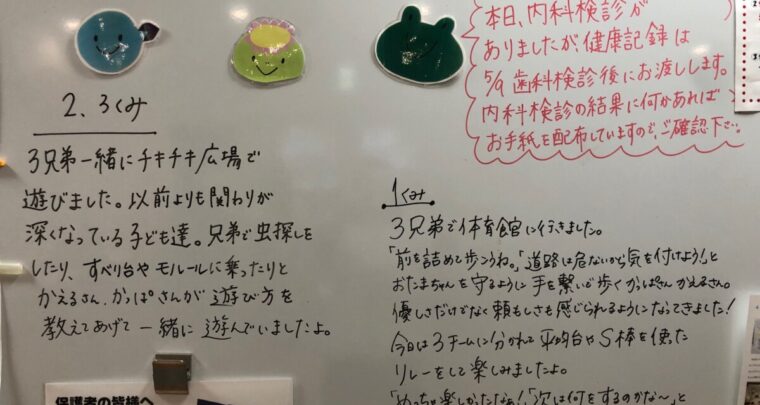 本日、内科検診が
ありましたが健康記録は
5/9 歯科検診後にお渡しします。
内科検診の結果に何かあれば
お手紙を配布していますので、ご確認下さい。
2、3くみ
3兄弟一緒にチキチキ広場で
遊びました。以前よりも関わりが
深くなっている子ども達。兄弟で虫探しを
したり、すべり台やモルールに乗ったりと
かえるさん、かっぱさんが遊び方を
教えてあげて一緒に遊んでいましたよ。
1くみ
3兄弟で体育館に行きました。
「前を詰めて歩こうね。」「道路は危ないから気を付けよう!」と
おたまちゃんを守るように手を繋いで歩くかっぱさん、かえるさん。
優しさだけでなく頼もしさも感じられるようになってきました!
今日は3チームに分かれて平均台やS棒を使った
リレーをして楽しみましたよ。
「めっちゃ楽しかったなぁ!」「次は何をするのかな〜」と
保護者の皆様へ